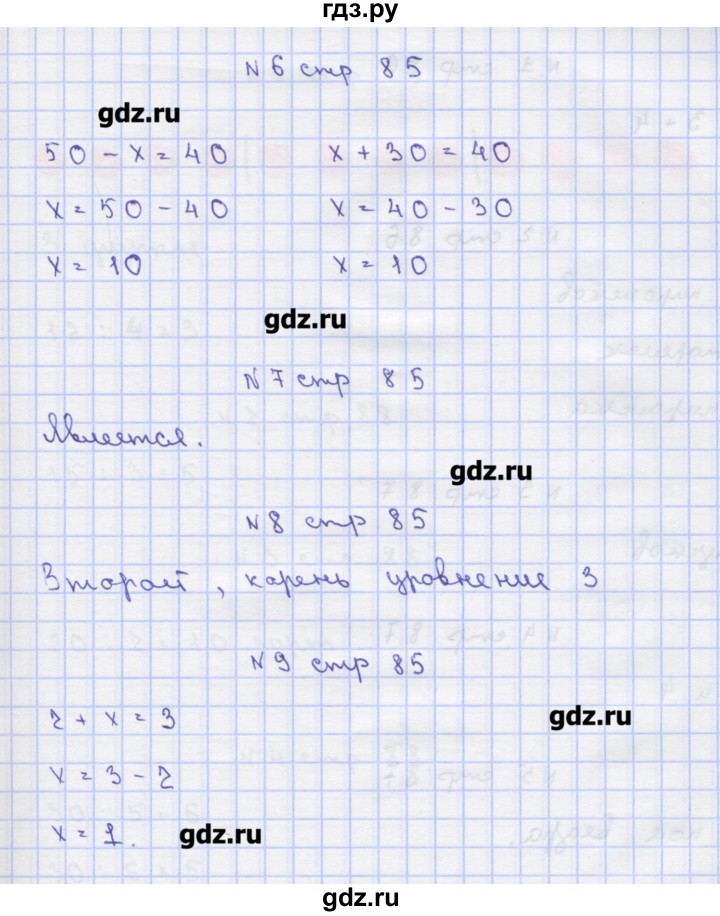 гдз.ру
N 6 стр 85
gdz.ru
50 - x = 40 x + 30 = 40
x = 50 - 40 x = 40 - 30
x = 10 x = 10
gdz.ru
N 7 стр 85
Является.
gdz.ru
N 8 стр 85
Второй, корень уровнение 3
N 9 стр 85
2 + x = 3
gdz.ru
x = 3 - 2
x = 1.
gdz.ru
gdz.ru